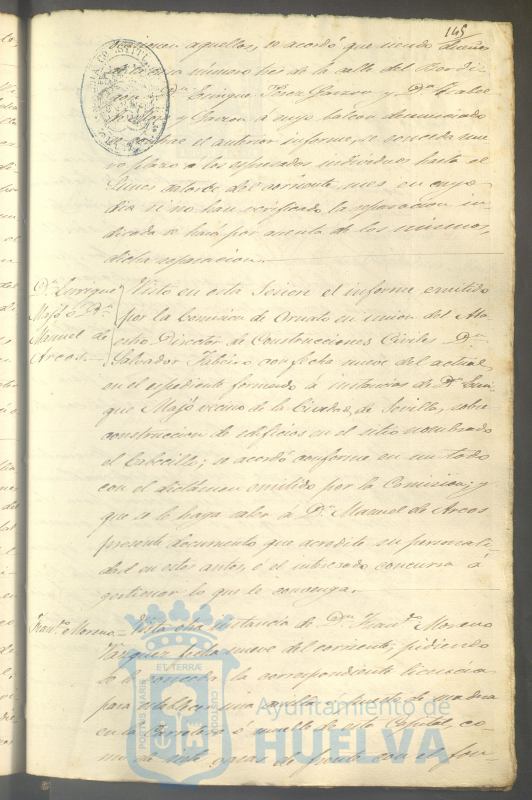 145
aquellos, se acordó que siendo dueños
de la casa número tres de la calle del
Dn. Enrique Perez Garzon y Dn. Carlos
y Garzon á cuyo balcon denunciado
se refiere el anterior informe, se conceda un
plazo á los expresados individuos hasta el
Lunes catorce del corriente mes, en cuyo
dia si no han verificado la reparacion in-
dicada se hará por cuenta de los mismos,
dicha reparacion.
Dn. Enrique
Majó á Dn.
Manuel de
Arcos.
Visto en esta Sesion el informe emitido
por la Comision de Ornato en union del Ma-
estro Director de Construcciones Civiles Dn.
Salvador con fecha nueve del actual,
en el espediente formado á instancias de Dn. Enri-
que Majó vecino de la Ciudad de Sevilla, sobre
construccion de edificios en el sitio nombrado
el Cabecillo; se acordó conforme en un todo
con el dictámen emitido por la Comision; y
que se le haga saber á Dn. Manuel de Arcos
presente documento que acredite su personali-
dad en estos autos, ó el interesado concurra á
gestionar lo que le convenga.
Franco. Moreno
Vista otra instancia de Dn. Franco. Moreno
Vazquez fecha nueve del corriente, pidiendo
se le conceda la correspondiente licencia
para establecer una de madera
en la Carretera ó muelle de esta Capital, co-
mo de siete varas de frente con el fon-
PORTUS MARIS
ET TERRÆ
CUSTODIA
Ayuntamiento de
HUELVA